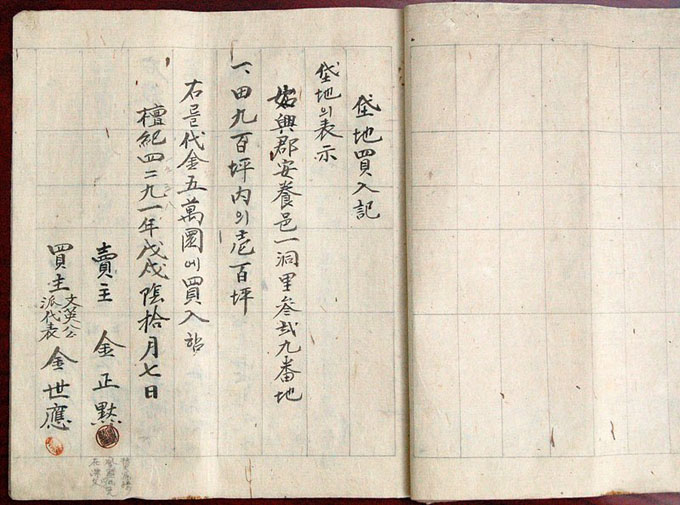 垈地買入記
垈地의表示
始興郡安養邑一洞里叄貳九番地
一、田九百坪内의壱百坪
右를代金五萬圜에買入함
檀紀四二九一年戊戌陰拾月七日
賣主 金正黙
買主 文英公派代表 金世應